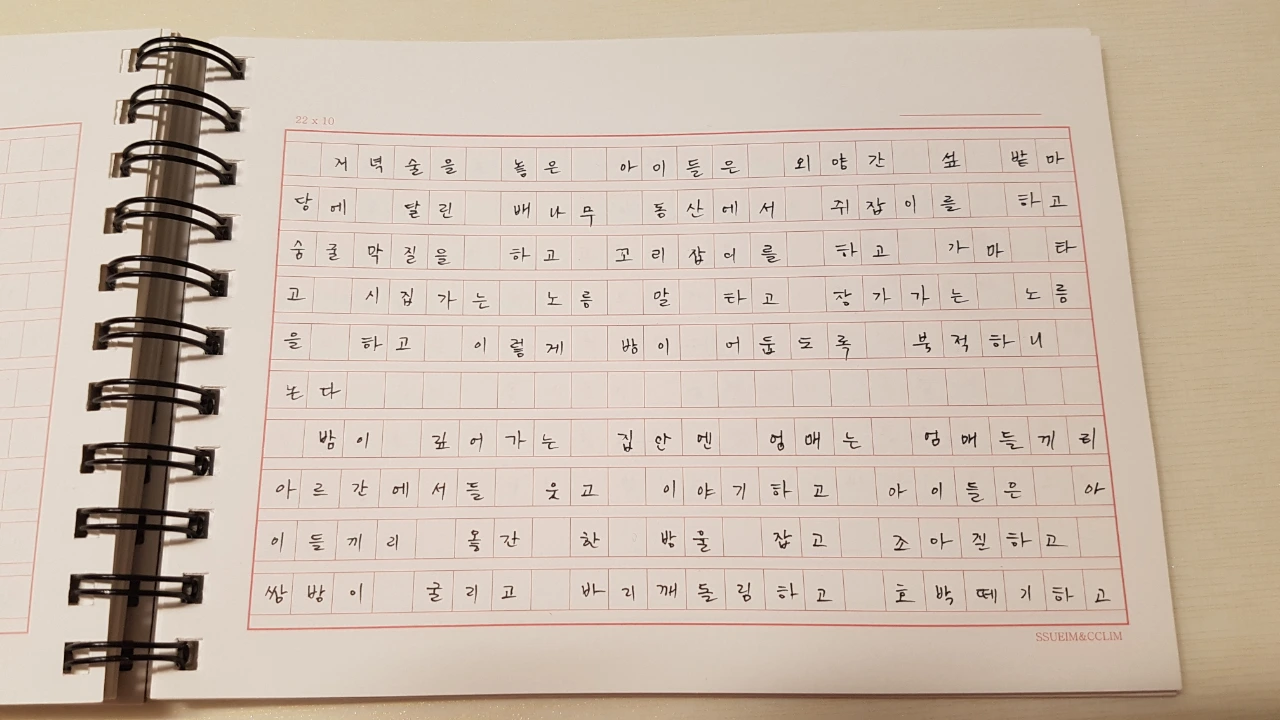 22 x 10
저녁술을 놓은 아이들은 외양간 섶 밭마
당에 달린 배나무 동산에서 쥐잡이를 하고
숭굴막질을 하고 꼬리잡이를 하고 가마 타
고 시집가는 노름 말 타고 장가가는 노름
을 하고 이렇게 밤이 어둡도록 북적하니
논다
밤이 깊어가는 집안엔 엄매는 엄매들끼리
아르간에서들 웃고 이야기하고 아이들은 아
이들끼리 웋간 한 방을 잡고 조아질하고
쌈방이 굴리고 바리깨돌림하고 호박떼기하고
SSUEIM&CCLIM